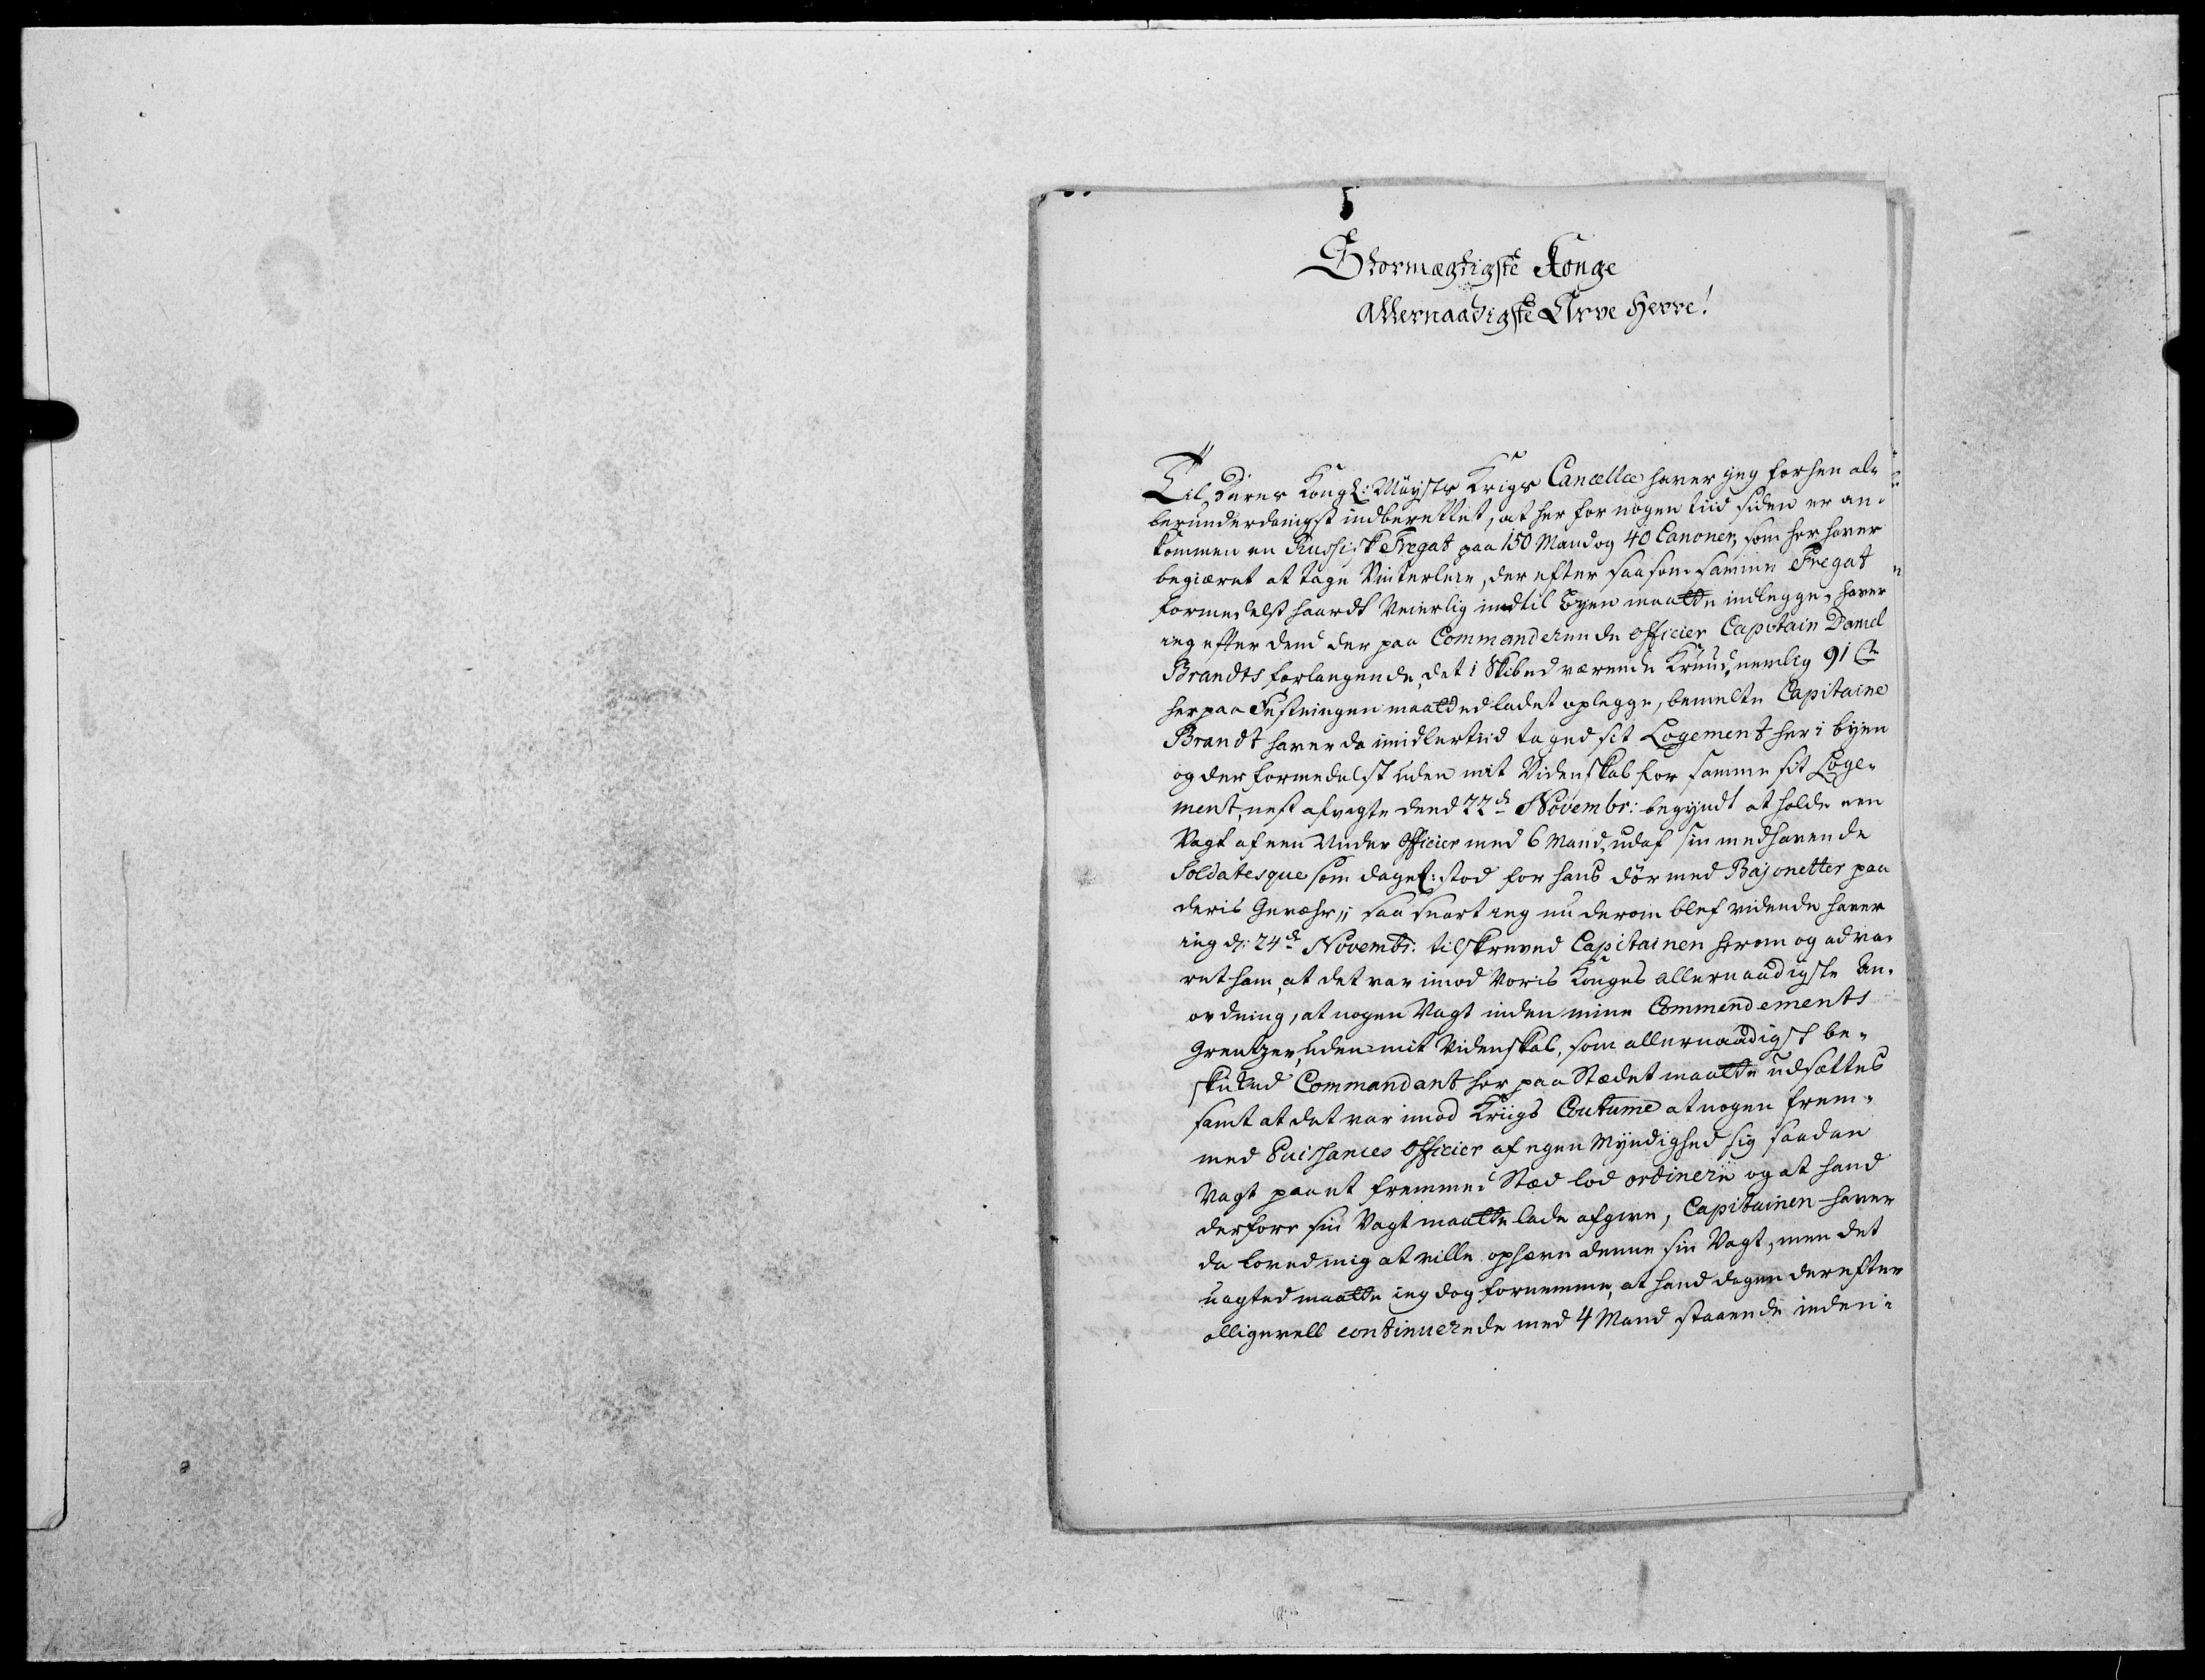 Stormægtigste Konge
Allernaadigste Arve Herre!
Til Deres Kongl: Mayts Krigs Cancellie haver jeg forhen al-
lerunderdanigst indberettet, at her for nogen tiid siden er an-
kommen en Russisk Fregat paa 150 Mand og 40 Canoner, som her haver
begiæret at tage Vinterleie, der efter saasom samme Fregat
formedelst haardt Veierlig indtil Byen maatte indlegge, haver
ieg efter dend der paa Commanderende Officier Capitain Daniel
Brandts forlangende, det i Skibed værende Kruud, nemlig 91 Ctn
her paa Festningen maatted ladet oplegge, bemelte Capitaine
Brandt haver da imidlertiid taged sit Logement her i byen
og der formedelst uden mit Videnskab for samme sit Loge-
ment, nest afvigte dend 22de Novembr: begyndt at holde een
Vagt af een Under Officier med 6 Mand, udaf sin medhavende
Soldatesque som dagl: stod for hans dör med Bajonetter paa
deris Gevæhr; saa snart ieg nu derom blef vidende haver
ieg d: 24de Novembr: tilskreved Capitainen herom og adva-
ret ham, at det var imod Voris Konges allernaadigste An-
ordning, at nogen Vagt inden mine Commendements
Grentzer, uden mit Videnskab, som allernaadigst be-
skikked Commandant her paa Stædet maatte udsættes
samt at det var imod Kriigs Coutume at nogen frem-
med Puissances Officier af egen Myndighed sig saadan
Vagt paa et fremmed Stæd lod ordinere og at hand
derfore sin Vagt maatte lade afgive, Capitainen haver
da loved mig at ville ophæve denne sin Vagt, men det
uagted maatte ieg dog fornemme, at hand dagen derefter
alligevell continuerede med 4 Mand staaende inden i